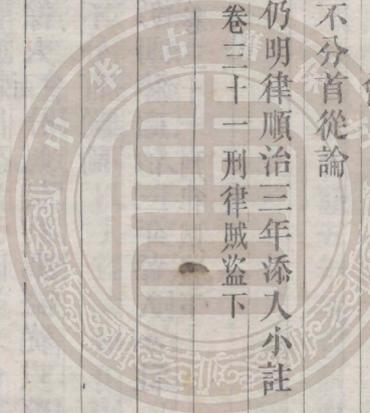 不分首從論
仍明律順治三年添入小註
卷三十一刑律賊盜下